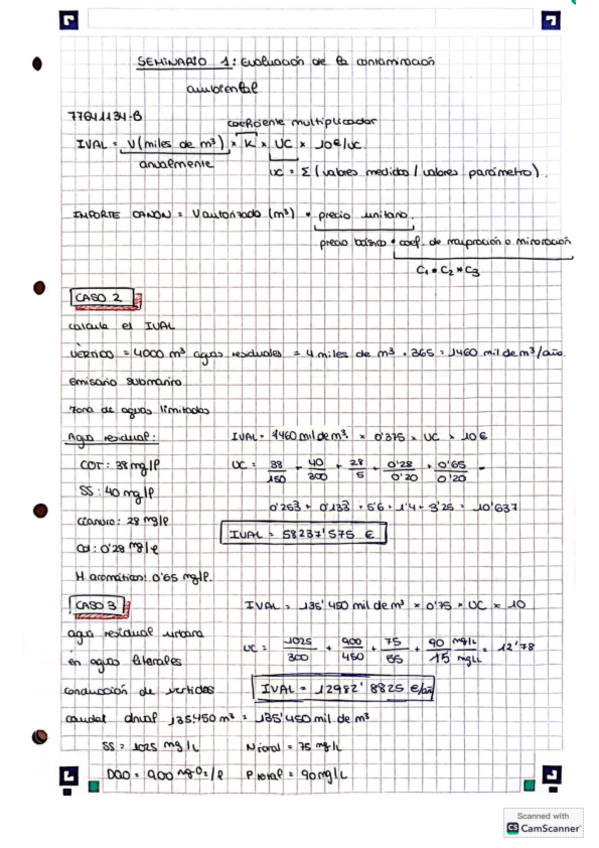 SEMINARIO 1: Evaluación de la contaminación
ambiental
77641134-B
coeficiente multiplicador
IVAL = V (miles de m³) * K * UC * 10€/UC.
anualmente
UC = Σ (valores medidos / valores parámetro).
IMPORTE CANON = V autorizado (m³) * precio unitario.
precio básico * coef. de mayoración o minoración
C1 * C2 * C3
CASO 2
calcula el IVAL
VERTIDO = 4000 m³ aguas residuales = 4 miles de m³ · 365 = 1460 mil de m³/año.
Emisario submarino
Zona de aguas limitadas
Agua residual:
IVAL = 1460 mil de m³ × 0'375 × UC × 10€
COT: 38 mg/l
UC = 38/150 + 40/300 + 28/5 + 0'28/0'20 + 0'65/0'20 =
SS: 40 mg/l
0'253 + 0'133 + 5'6 + 1'4 + 3'25 = 10'637
Cianuro: 28 mg/l
IVAL = 58237'575 €
Cd: 0'28 mg/l
H. aromáticos: 0'65 mg/l.
CASO 3
IVAL = 135'450 mil de m³ × 0'75 × UC × 10
agua residual urbana
UC = 1025/300 + 900/450 + 75/55 + 90 mg/L / 15 mg/L = 12'78
en aguas litorales
conducción de vertidos
IVAL = 12982'8825 €/año
caudal anual 135450 m³ = 135'450 mil de m³
SS = 1025 mg/L
N total = 75 mg/L
DQO = 900 mgO₂/l
P total = 90 mg/L
Scanned with
CS CamScanner